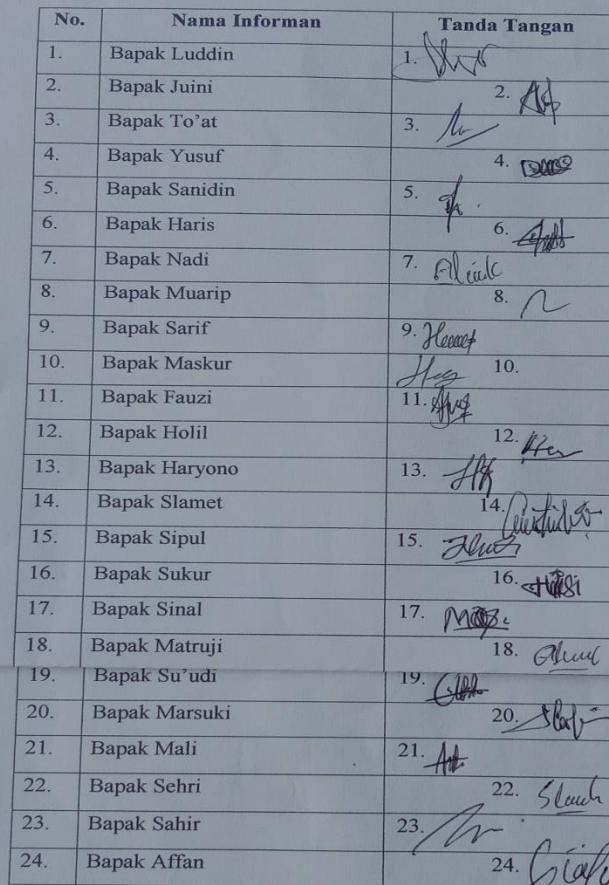 No. Nama Informan Tanda Tangan
1. Bapak Luddin 1.
2. Bapak Juini 2.
3. Bapak To'at 3.
4. Bapak Yusuf 4.
5. Bapak Sanidin 5.
6. Bapak Haris 6.
7. Bapak Nadi 7.
8. Bapak Muarip 8.
9. Bapak Sarif 9.
10. Bapak Maskur 10.
11. Bapak Fauzi 11.
12. Bapak Holil 12.
13. Bapak Haryono 13.
14. Bapak Slamet 14.
15. Bapak Sipul 15.
16. Bapak Sukur 16.
17. Bapak Sinal 17.
18. Bapak Matruji 18.
19. Bapak Su'udi 19.
20. Bapak Marsuki 20.
21. Bapak Mali 21.
22. Bapak Sehri 22.
23. Bapak Sahir 23.
24. Bapak Affan 24.